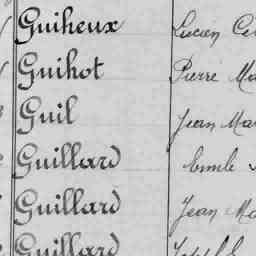 Guiheux Lucien
Guihot Pierre
Guil Jean
Guillard Emile
Guillard Jean
Guillard